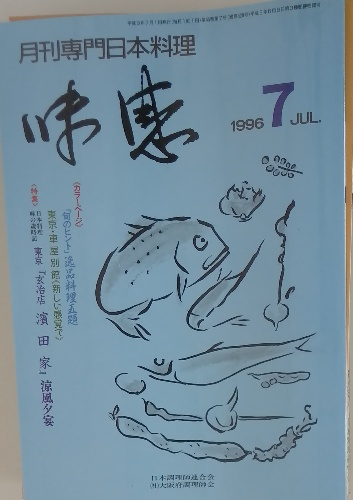 月刊専門日本料理
味恵
1996 7 JUL.
《カラーページ》
「旬のヒント」逸品料理五題
東京・車屋別館《新しい感覚で》
《特集》
日本料理
味の歳時記
東京『玄冶店 濱田家』涼風夕宴
日本調理師連合会
㈳大阪府調理師会